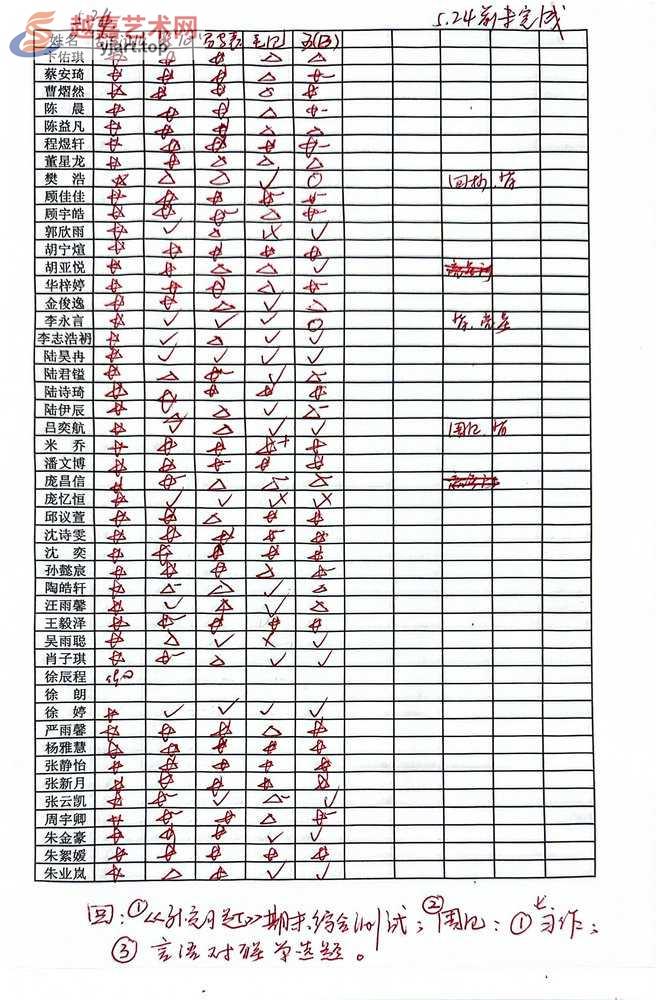 越嘉艺术网
yjart.top
5.24
5.24前未完成
姓名
卞佑琪 ☆ △ △
蔡安琦 ☆ ☆ ☆ △ ☆-
曹熠然 ☆ ☆ ☆ ☆
陈晨 ☆ ☆ ☆ △ ☆-
陈益凡 ☆ ☆ ☆ △ △
程煜轩 ☆ ☆ ☆ ☆ ☆-
董星龙 ☆ ☆ △ △ △
樊浩 ☆ △ △ ✓ ○
顾佳佳 ☆ ☆ ☆ ☆- ☆-
顾宇皓 ☆ ☆ ☆- △ ☆-
郭欣雨 ☆ ✓ △ ✓
胡宁煊 ☆ ☆ ☆ ☆ ☆
胡亚悦 ☆ ☆ △ △ ✓
华梓婷 ☆ ☆ ☆ △ ☆-
金俊逸 ☆ ☆ △ ✓
李永言 ☆ ✓ ✓ ✓ ○
李志浩礽 ☆ ✓ △ ✓ ✓
陆昊冉 ☆ ✓ ✓ ✓ ✓
陆君镒 ☆ △ ☆- ✓ △-
陆诗琦 ☆ ☆ ☆ ☆-
陆伊辰 ☆ △ ✓ △-
吕奕航 ☆ ✓ △ ✓ ✓ 周记
米乔 ☆ ☆ ☆ ☆+ ☆
潘文博 ☆ ☆ ☆ ☆ ☆
庞昌信 ☆ ☆- △ △- △-
庞忆恒 ☆ ✓ ✓
邱议萱 ☆ ☆ △ ☆ ☆
沈诗雯 ☆ ☆ ☆ ☆- ☆
沈奕 ☆ ☆ ☆ ☆ ☆
孙懿宸 ☆ ☆ ☆ △ ☆-
陶皓轩 ☆ △- △ ✓ △
汪雨馨 ☆ ✓ △ ✓ △
王毅泽 ☆ ☆- ☆ ☆ ☆
吴雨聪 ☆ △ ✓ × ✓
肖子琪 ☆ ☆- △ ✓ ✓
徐辰程
徐朗
徐婷 ☆ ✓ ✓ ✓ ✓
严雨馨 ☆ ☆ ☆ △ ☆
杨雅慧 ☆ ☆ ☆ ☆ ☆
张静怡 ☆ ☆ ☆ ☆ ☆
张新月 ☆ ☆ ☆ ☆ ☆
张云凯 ☆ ☆- ✓ △- ✓
周宇卿 ☆ ☆- ☆ △ ☆-
朱金豪 ☆ ☆ ☆ ✓ ✓
朱絮媛 ☆ ☆ ☆ ☆ ☆
朱业岚 ☆ △ ☆ ✓ ✓
①《 》期末综合测试；②周记：①习作；
③言语对联单选题。